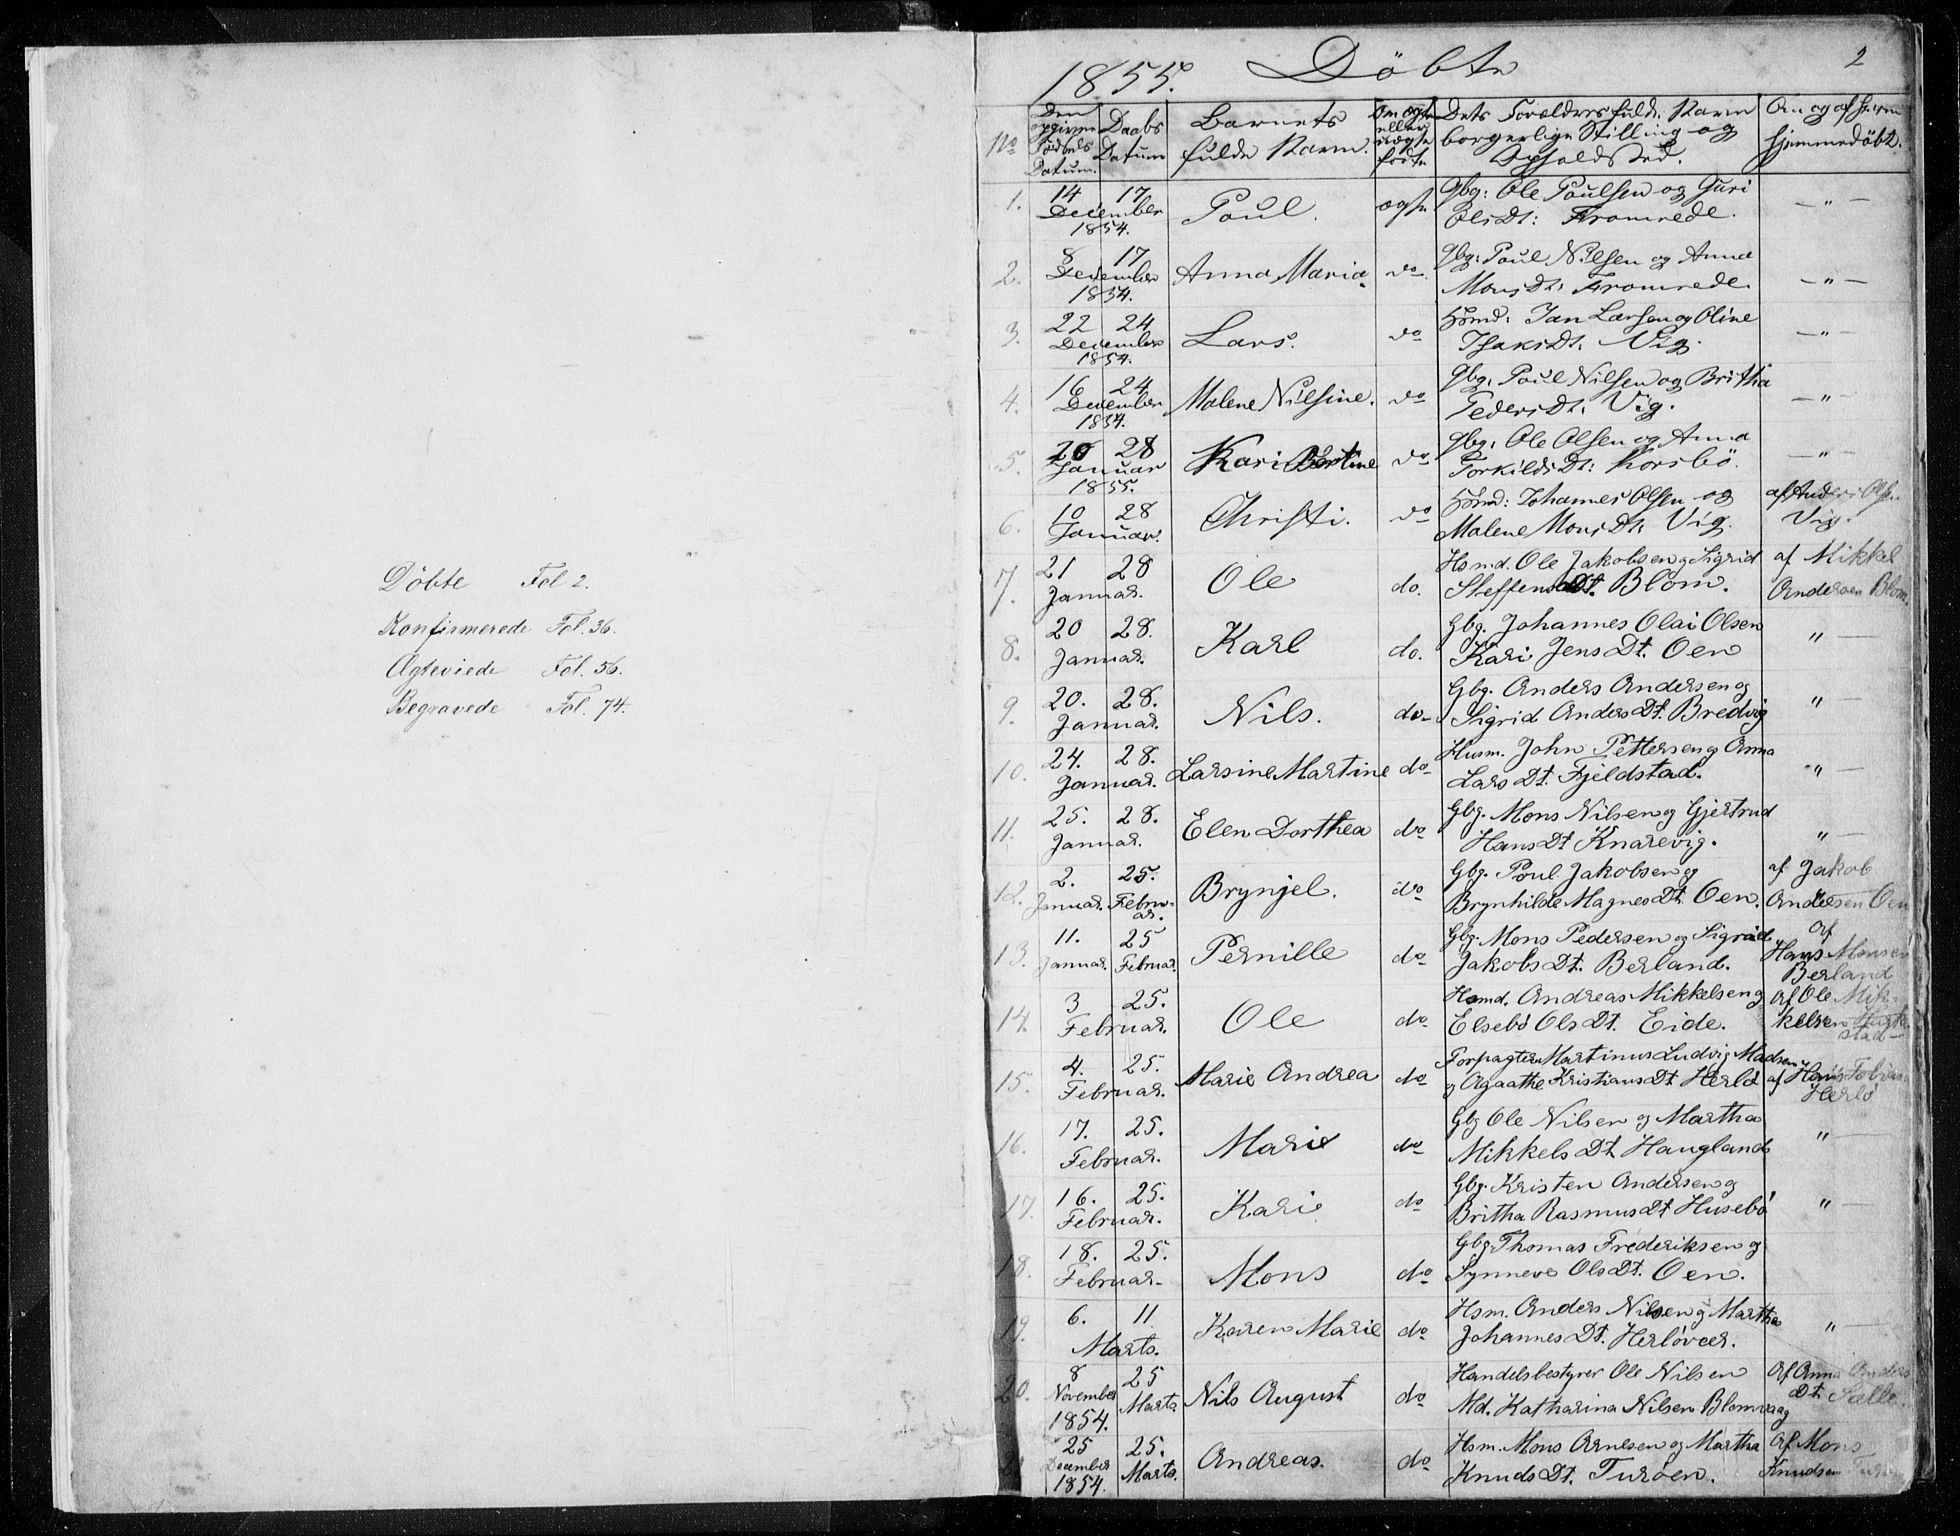 Döbte Fol 2.
Konfirmerede Fol. 36.
Ægteviede Fol. 56.
Begravede Fol. 74.
2
1855. Döbte
No
Den opgivne Födsels Datum.
Daabs Datum
Barnets fulde Navn.
Om ægte eller uægte födte
Dets Forældres fulde Navn borgerlige Stilling og Opholdssted.
Om og af hvem hjemmedöbt.
1. 14 December 1854. 17 Poul. ægte Gbg: Ole Poulsen og Guri
Olsdt: Fromrede. — " —
2. 8 December 1854. 17 Anna Maria. do. Gbg: Poul Nilsen og Anna
Monsdt: Fromrede. — " —
3. 22 December 1854. 24 Lars. do Hsmd: Jan Larsen og Oline
Isaksdt: Vig. — " —
4. 16 December 1854. 24 Malene Nilsine. do Gbg: Poul Nilsen og Britha
Pedersdt: Vig. — " —
5. 20 Januar 1855. 28 Kari Bertine do Gbg: Ole Olsen og Anna
Torkildsdt: Korsbö. — " —
6. 10 Januar. 28 Christi. do Hsmd: Johannes Olsen og
Malene Monsdt: Vig. af Anders Olsen
Vig.
7. 21 Januar. 28 Ole do. Hsmd. Ole Jakobsen og Sigrid
Steffensdt. Blom. af Mikkel
Andersen Blom.
8. 20 Januar. 28. Karl do. Gbg. Johannes Olai Olsen
Kari Jens Dt. Oen " —
9. 20. Januar. 28. Nils. do- Gbg. Anders Andersen og
Sigrid Anders Dt. Bredvig " —
10. 24. Januar. 28. Larsine Martine do- Husm. John Pettersen og Anna
Lars Dt. Fjeldstad. " —
11. 25. Januar. 28. Elen Dorthea do Gbg. Mons Nilsen og Gjertrud
Hans Dt Knarevig. " —
12. 2. Januar. 25. Februar. Brynjel. do Gbg. Poul Jakobsen og
Brynhilde Magnes Dt. Oen. af Jakob
Andersen Oen
13. 11. Januar. 25 Februar. Pernille do Gbg. Mons Pedersen og Sigrid
Jakobs Dt. Berland. Af
Hans Monsen
Berland
14. 3 Februar. 25. Ole do Hsmd. Andreas Mikkelsen og
Elsebö Ols Dt. Eide. Af Ole Mik-
kelsen
stad
15. 4. Februar. 25. Marie Andrea do Forpagter Martinus Ludvig Madsen
og Agaathe Kristians Dt Herlö af Hans Tobias
Herlö
16. 17. Februar. 25. Marie do Gbg Ole Nilsen og Martha
Mikkels Dt Haugland " —
17. 16. Februar. 25. Kari do Gbg. Kristen Andersen og
Britha Rasmus Dt Husebö " —
18. 18. Februar. 25. Mons do Gbg Thomas Frederiksen og
Synneve Ols Dt. Oen.
19. 6. Marts. 11 Karen Marie do Hsm. Anders Nilsen og Martha
Johannes Dt. Herlöveer. " —
20. 8 November 1854. 25 Marts Nils August do Handelsbestyrer Ole Nilsen
Md. Katharina Nilsen Blomvaag Af Anna Anders
Dt Sælle.
25 December 1854. 25. Marts. Andreas. do Hsm. Mons Arnesen og Martha
Knuds Dt. Turöen. Af Mons
Knudsen